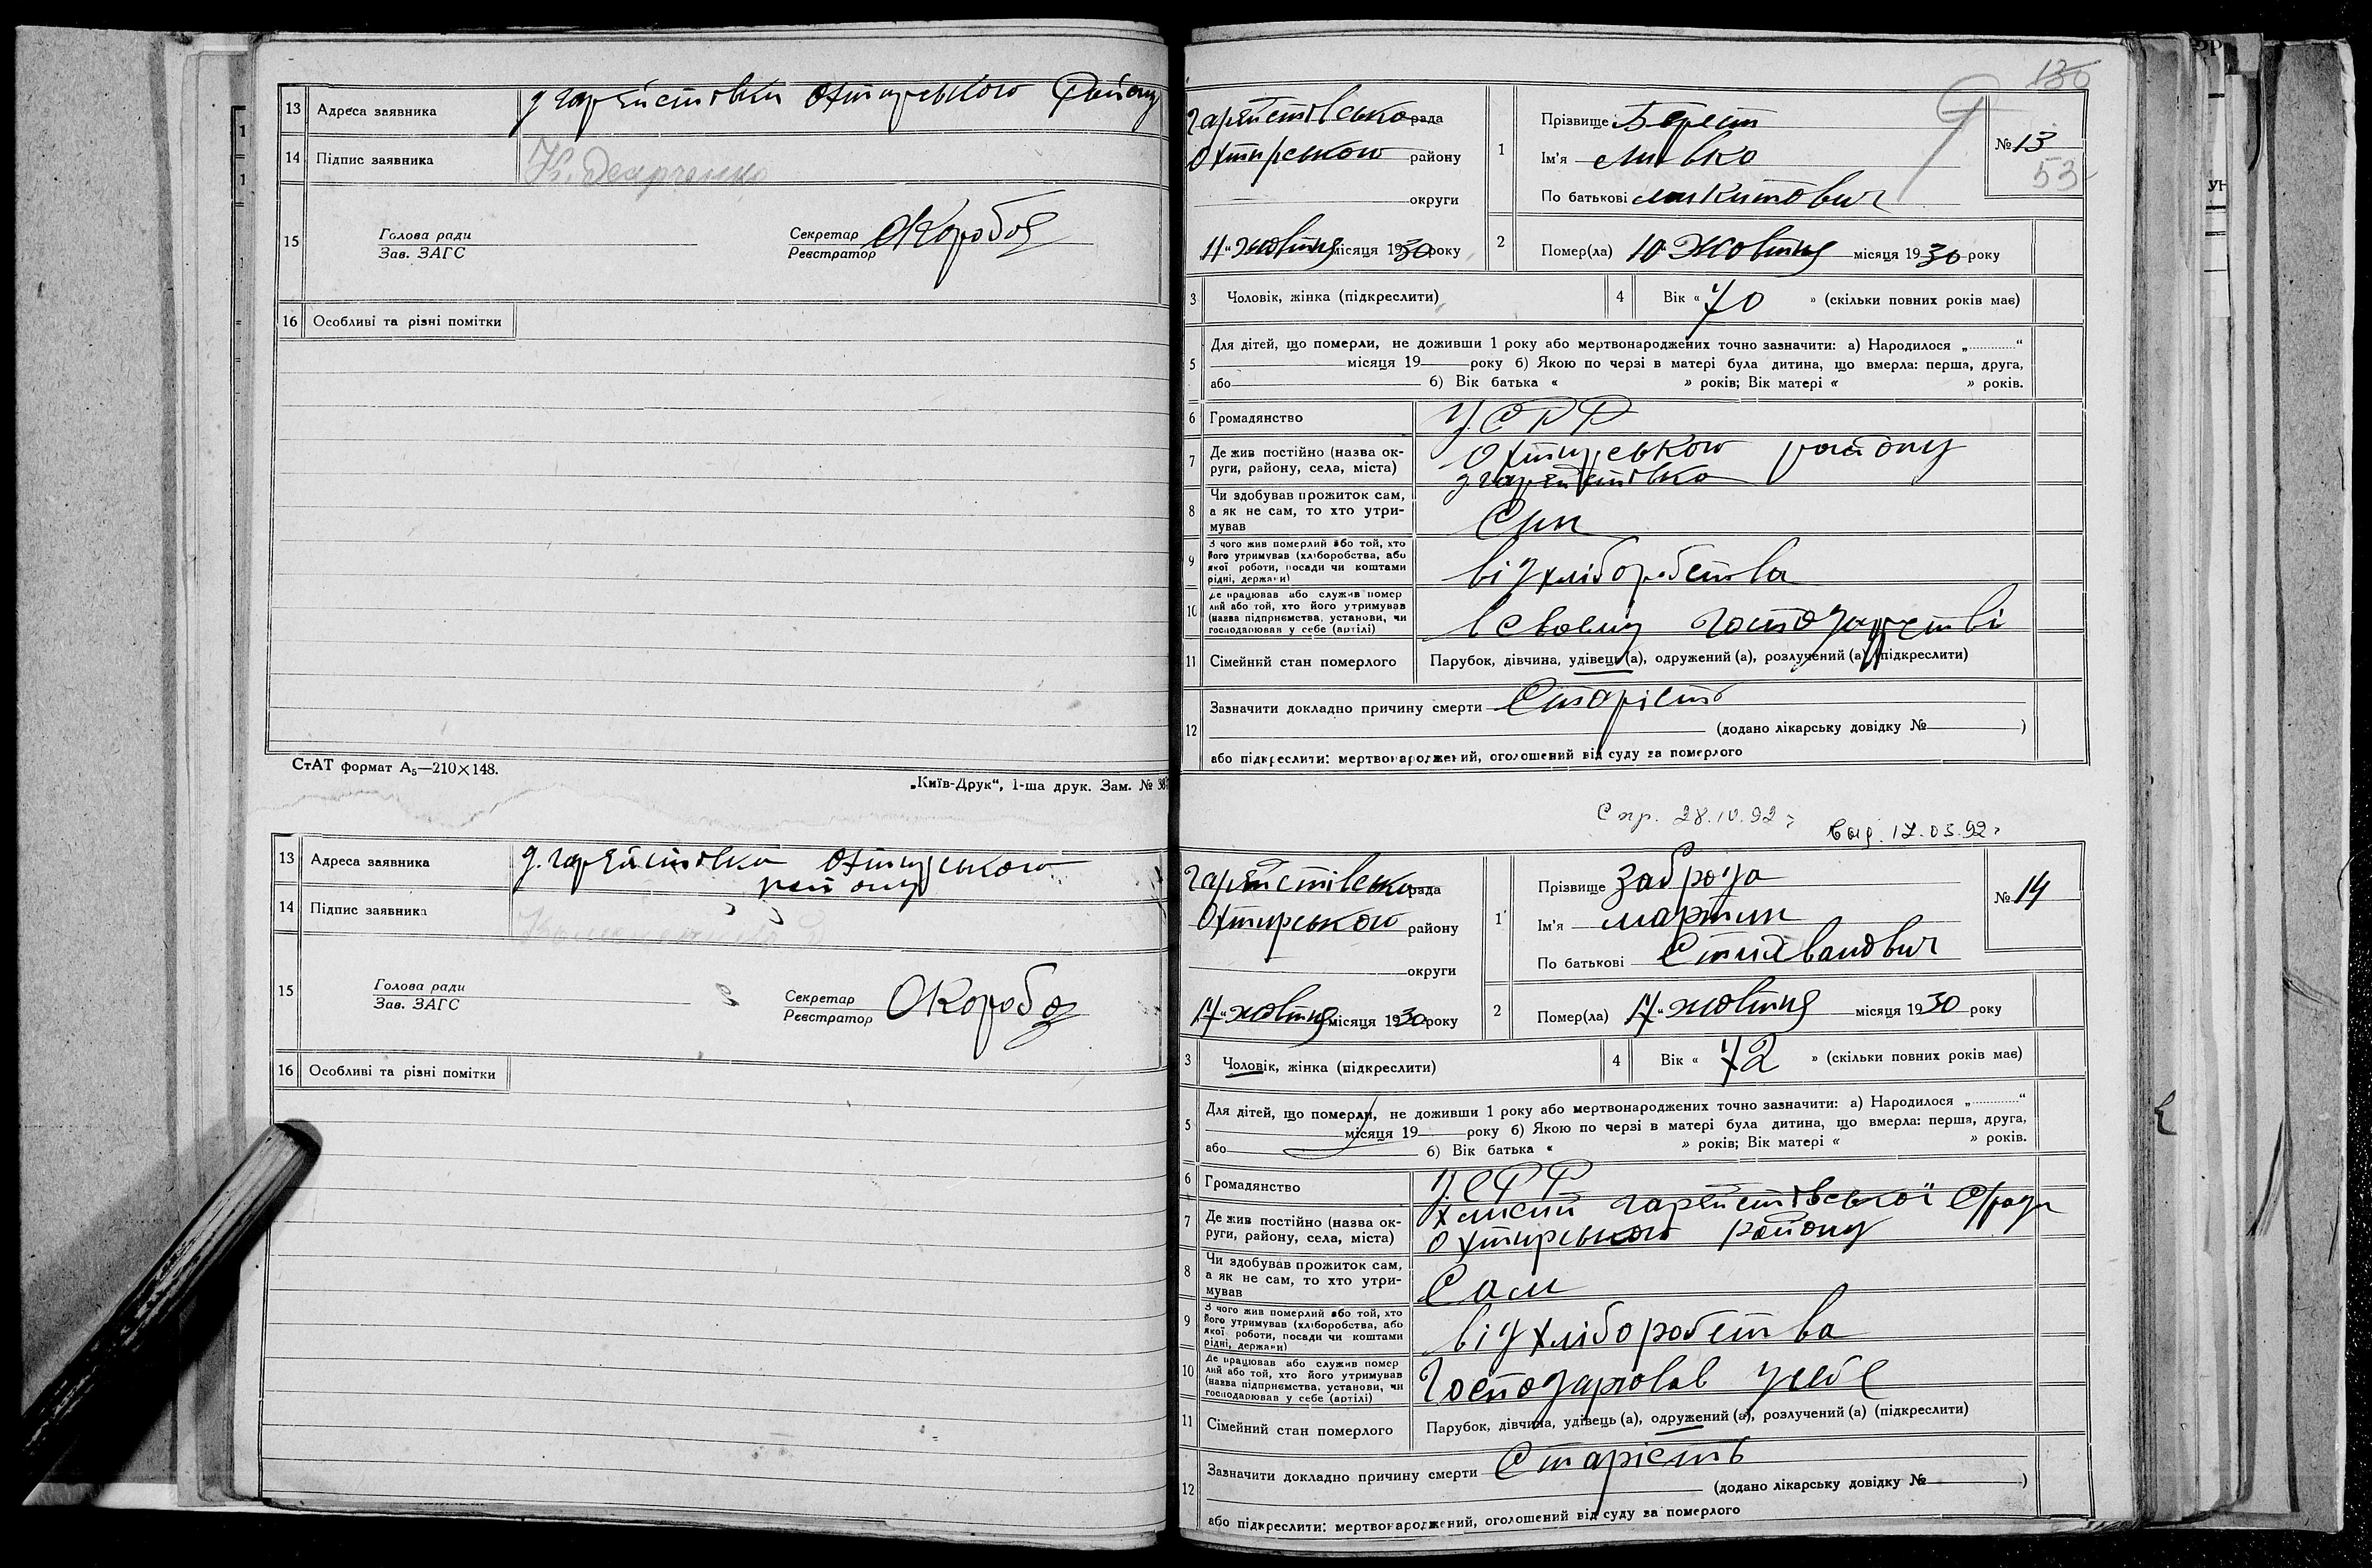 13 Адреса заявника Охтирського Району
14 Підпис заявника
15 Голова ради
Зав. ЗАГС
Секретар
Реєстратор
ОКоробоя
16 Особливі та різні помітки
СтАТ формат А₅—210×148.
„Київ-Друк“, 1-ша друк. Зам. № 38
13 Адреса заявника Охтирського
району
14 Підпис заявника
15 Голова ради
Зав. ЗАГС
Секретар
Реєстратор
16 Особливі та різні помітки
130
рада
Охтирського району
округи
11 „ жовтня місяця 1930 року
1 Прізвище Берест
Ім'я Левко
По батькові Микитович
№ 13
53
2 Помер(ла) 10 Жовтня місяця 1930 року
3 Чоловік, жінка (підкреслити)
4 Вік « 70 » (скільки повних років має)
5 Для дітей, що померли, не доживши 1 року або мертвонароджених точно зазначити: а) Народилося „ “
місяця 19 року б) Якою по черзі в матері була дитина, що вмерла: перша, друга,
або б) Вік батька « » років; Вік матері « » років.
6 Громадянство УСРР
7 Де жив постійно (назва ок-
руги, району, села, міста)
Охтирського району
8 Чи здобував прожиток сам,
а як не сам, то хто утри-
мував
Син
9 З чого жив померлий або той, хто
його утримував (хліборобства, або
якої роботи, посади чи коштами
рідні, держави)
від хліборобства
10 Де працював або служив помер
лий або той, хто його утримував
(назва підприємства, установи, чи
господарював у себе (артілі)
в своему господарстві
11 Сімейний стан померлого Парубок, дівчина, удівець (а), одружений (а), розлучений (а) (підкреслити)
12 Зазначити докладно причину смерти Старість
(додано лікарську довідку № )
або підкреслити: мертвонароджений, оголошений від суду за померлого
Спр. 28.10.92 г
Выд. 17.03.92 г
рада
Охтирського району
округи
17 „ жовтня місяця 1930 року
1 Прізвище Заброда
Ім'я Мартин
По батькові
№ 14
2 Помер(ла) 17 „ жовтня місяця 1930 року
3 Чоловік, жінка (підкреслити)
4 Вік « 72 » (скільки повних років має)
5 Для дітей, що померли, не доживши 1 року або мертвонароджених точно зазначити: а) Народилося „ “
місяця 19 року б) Якою по черзі в матері була дитина, що вмерла: перша, друга,
або б) Вік батька « » років; Вік матері « » років.
6 Громадянство УСРР
7 Де жив постійно (назва ок-
руги, району, села, міста)
Охтирського району
8 Чи здобував прожиток сам,
а як не сам, то хто утри-
мував
Сам
9 З чого жив померлий або той, хто
його утримував (хліборобства, або
якої роботи, посади чи коштами
рідні, держави)
від хліборобства
10 Де працював або служив помер
лий або той, хто його утримував
(назва підприємства, установи, чи
господарював у себе (артілі)
Господарював у себе
11 Сімейний стан померлого Парубок, дівчина, удівець (а), одружений (а), розлучений (а) (підкреслити)
12 Зазначити докладно причину смерти Старість
(додано лікарську довідку № )
або підкреслити: мертвонароджений, оголошений від суду за померлого